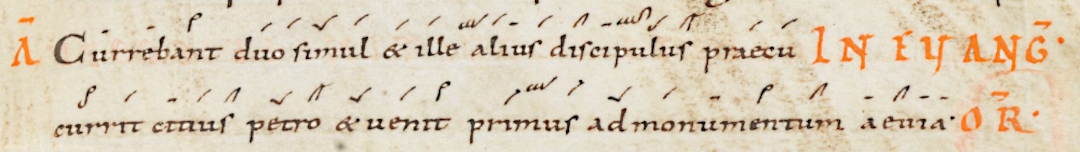 Ā Currebant duo simul & ille alius discipulus praecu IN EVANḠ·
currit citius petro & uenit primus ad monumentum aeuia· OR̄·